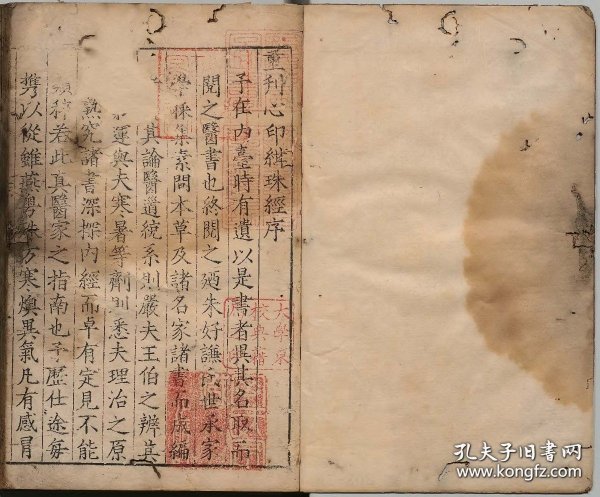 重刋心印紺珠經序
予在内臺時有遺以是書者異其名取而
閱之醫書也終閱之廼朱好謙氏世承家
學採集素問本草及諸名家諸書而成編
其論醫道統系則嚴夫王伯之辨其
運與夫寒暑等劑則悉夫理治之原
熟究諸書深探内經而卓有定見不能
稡若此真醫家之指南也予歷仕途每
携以從雖燕粤殊方寒燠異氣凡有感冒
孔夫子旧书网
www.kongfz.com